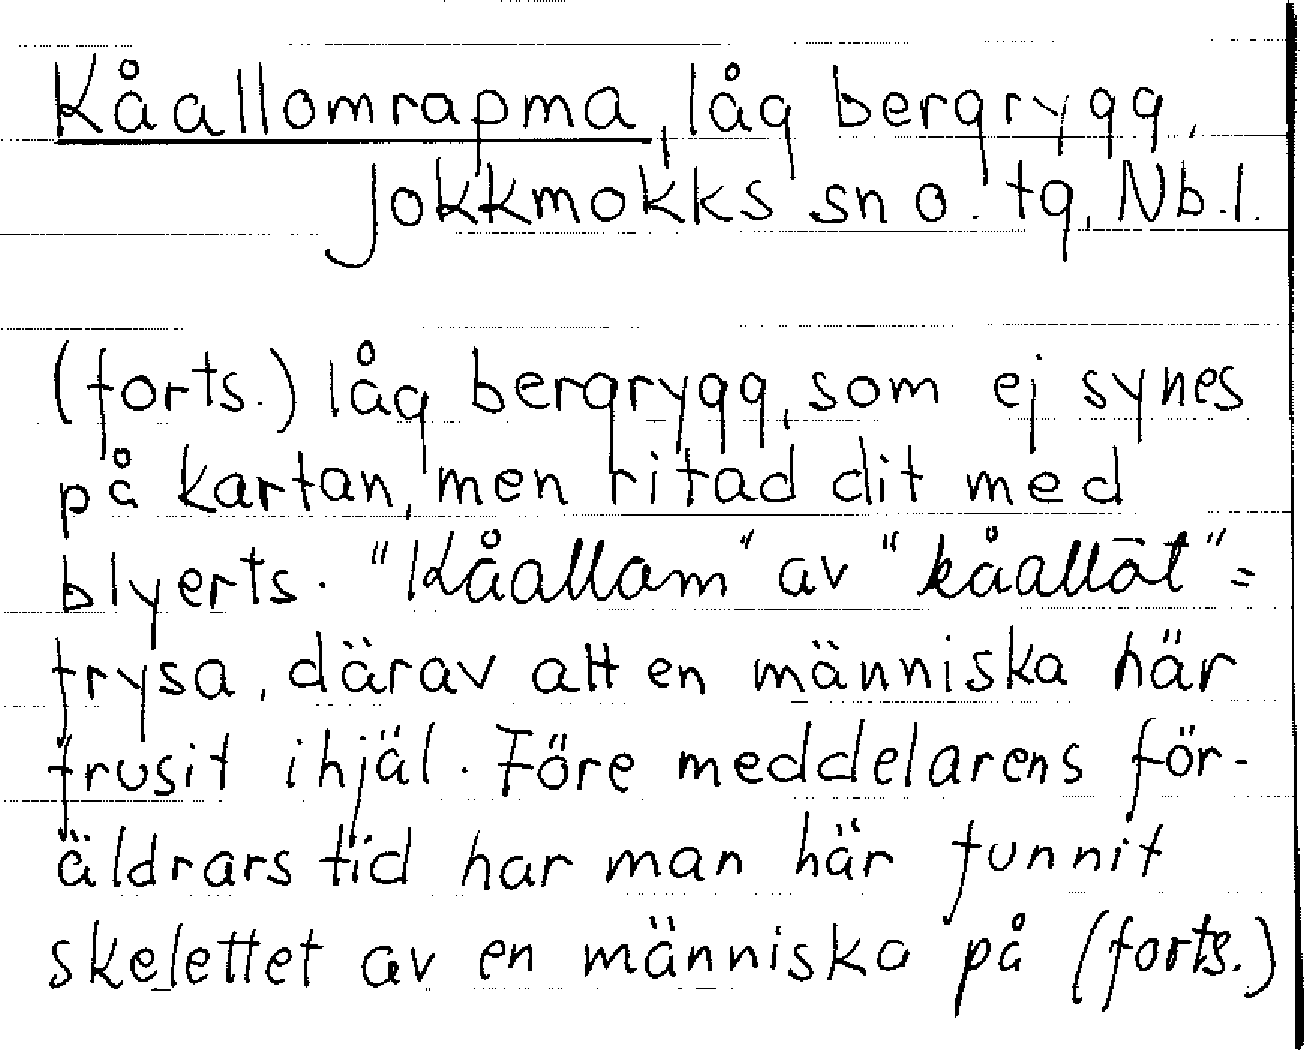 Kåallomrapma, låg bergrygg,
Jokkmokks sn o. tg, Nb.l.
(forts.) låg bergrygg, som ej synes
på kartan, men ritad dit med
blyerts. "Kåallam" av "kåallōt" =
frysa, därav att en människa här
frusit ihjäl. Före meddelarens för-
äldrars tid har man här funnit
skelettet av en människa på (forts.)